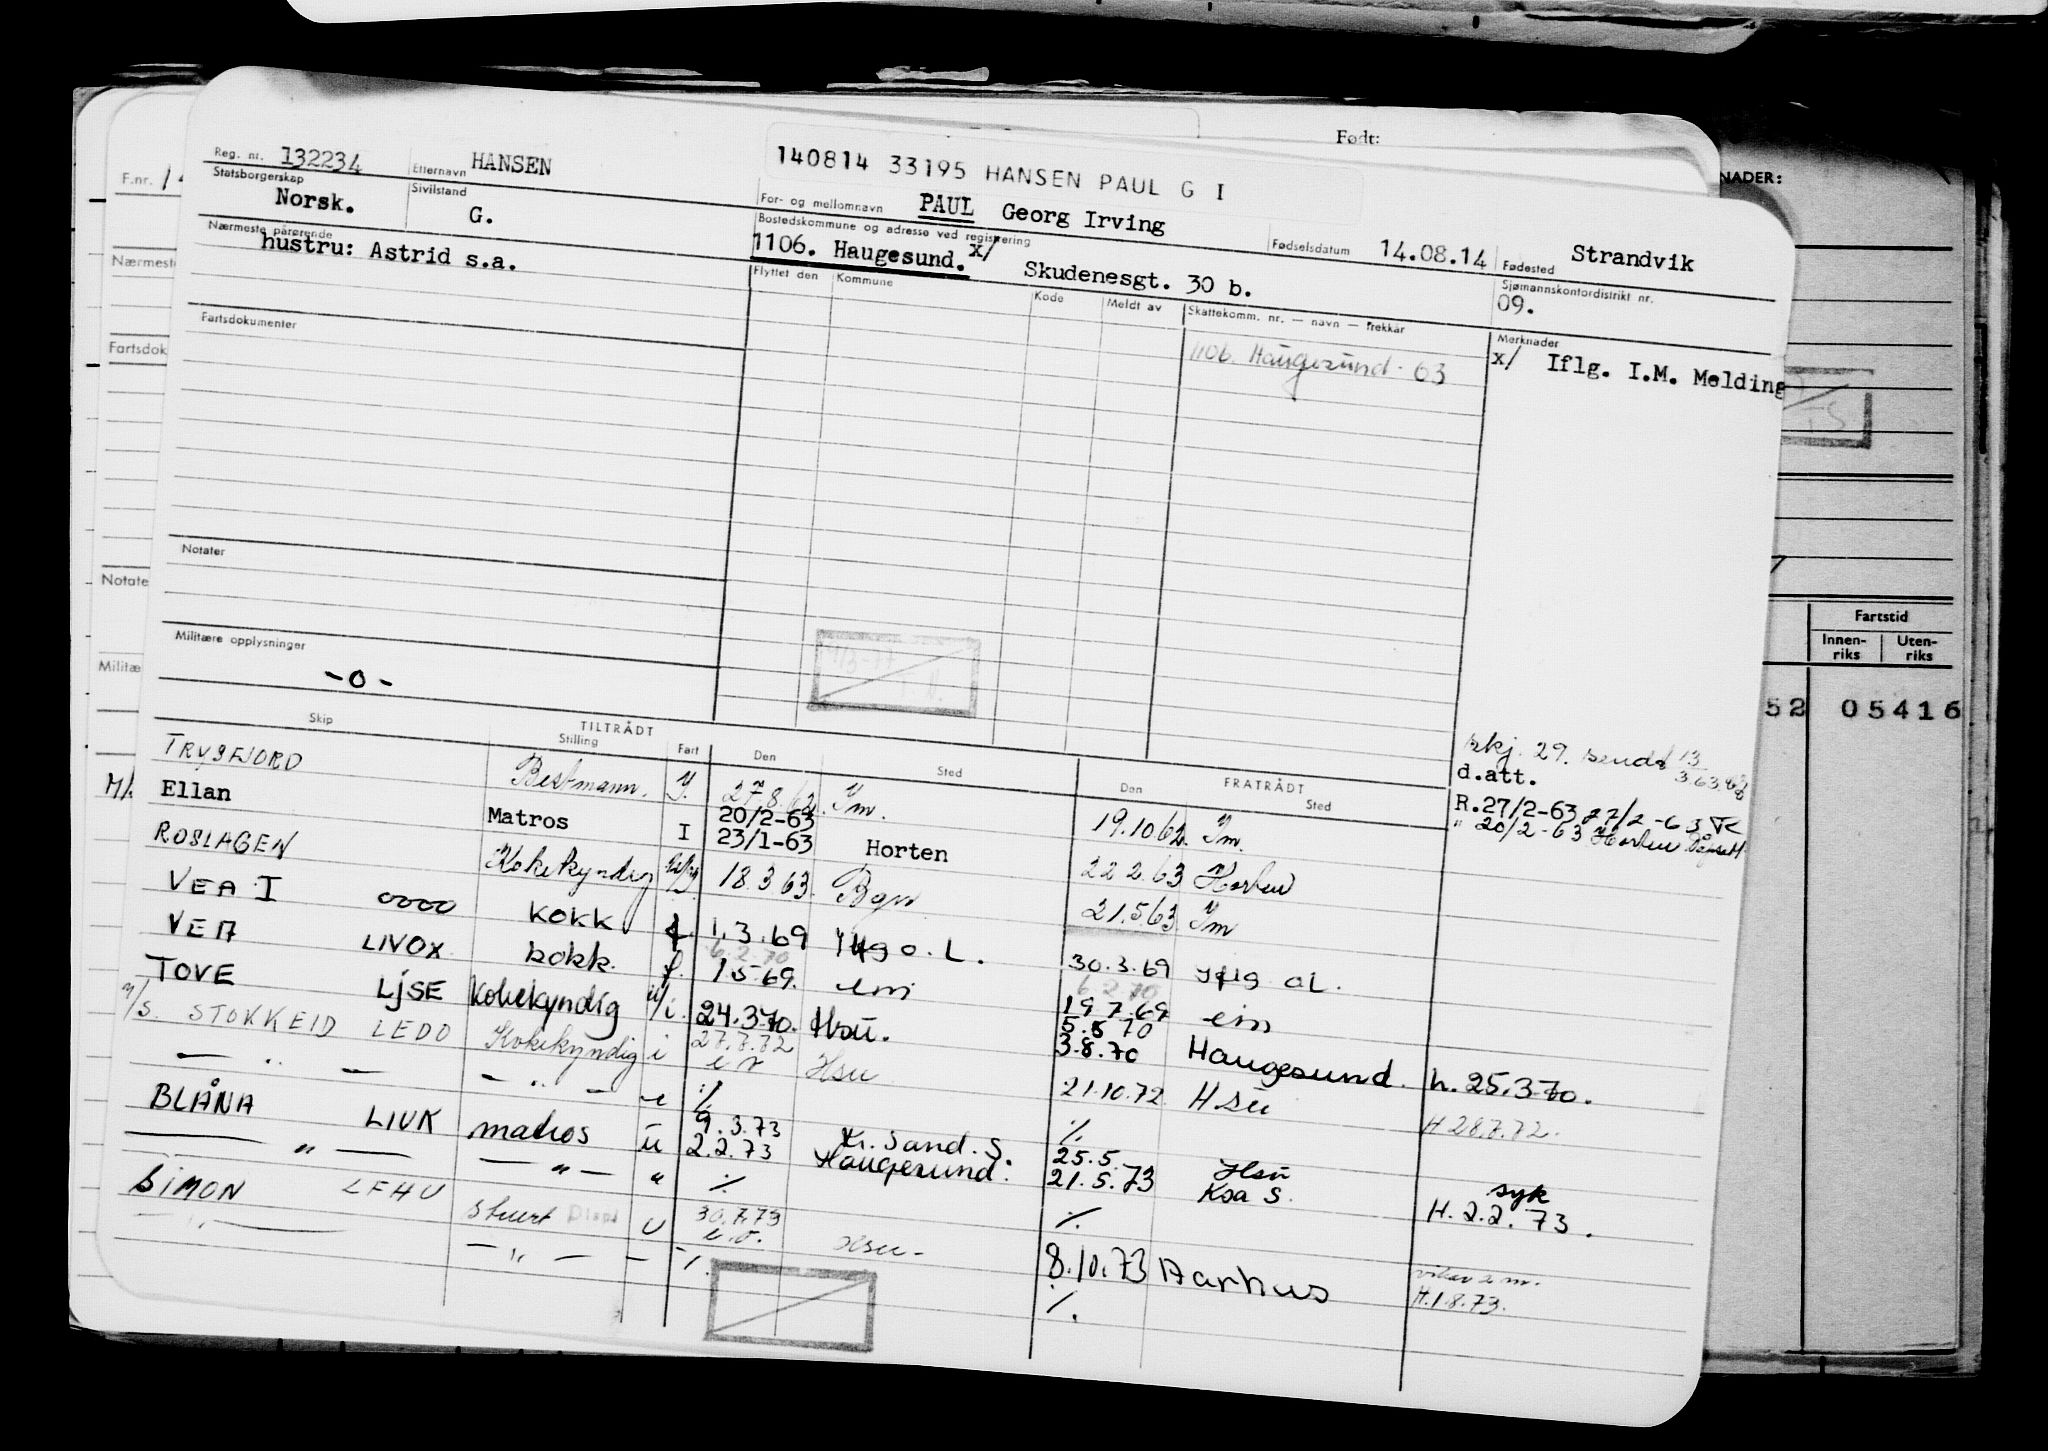 Født:
NADER:
F.nr. 14
Nærmest
Fartsdok
Notate
Militæ
Fartstid
Innen-riks Uten-riks
52 05416
140814 33195 HANSEN PAUL G I
Reg. nr. 132234 Etternavn HANSEN For- og mellomnavn PAUL Georg Irving Fødselsdatum 14.08.14 Fødested Strandvik
Statsborgerskap Norsk. Sivilstand G. Bostedskommune og adresse ved registrering 1106. Haugesund. x/ Skudenesgt. 30 b. Sjømannskontordistrikt nr. 09.
Nærmeste pårørende
hustru: Astrid s.a.
Flyttet den Kommune Kode Meldt av Skattekomm. nr. — navn — trekkår Merknader
1106. Haugesund. 63 x/ Iflg. I.M. Melding
Fartsdokumenter
Notater
Militære opplysninger
- o -
TILTRÅDT FRATRÅDT
Skip Stilling Fart Den Sted Den Sted
skj. 29. sendt 13/3.63
d.att.
TRYSFJORD Bestmann. Y. 27.8.62. Ym. 19.10.62. Ym. R.27/2-63 27/2-63
M/ Ellan Matros I 20/2-63 23/1-63 Horten 22.2.63 Horten " 20/2-63 Horten
ROSLAGEN Kokekyndig 18.3.63. Bgn 21.5.63 Ym
VEA I oooo kokk f. 1.3.69 Iflg o.L. 30.3.69 iflg oL.
VEA LIVOX kokk. f. 6.2.70 1.5.69. em 6.2.70 19.7.69 em
TOVE LJSE Kokekyndig u/i. 24.3.70. Hsu. 5.5.70 3.8.70 Haugesund. h. 25.3.70.
M/S. STOKKEID LEDO Kokekyndig i 27.7.72 Hsu 21.10.72 Hsu H 28.7.72.
— " — — " — u % %
BLÅNA LIUK matros u 9.3.73 2.2.73 Kr. Sand. S. Haugesund. 25.5. 21.5.73 Hsu Ksa S. syk H. 2.2.73.
— " — — " — " % %
SIMON LFHU Stuert U 30.7.73 Hsu- 8.10.73 Aarhus H.1.8.73.
— " — — " — — % %